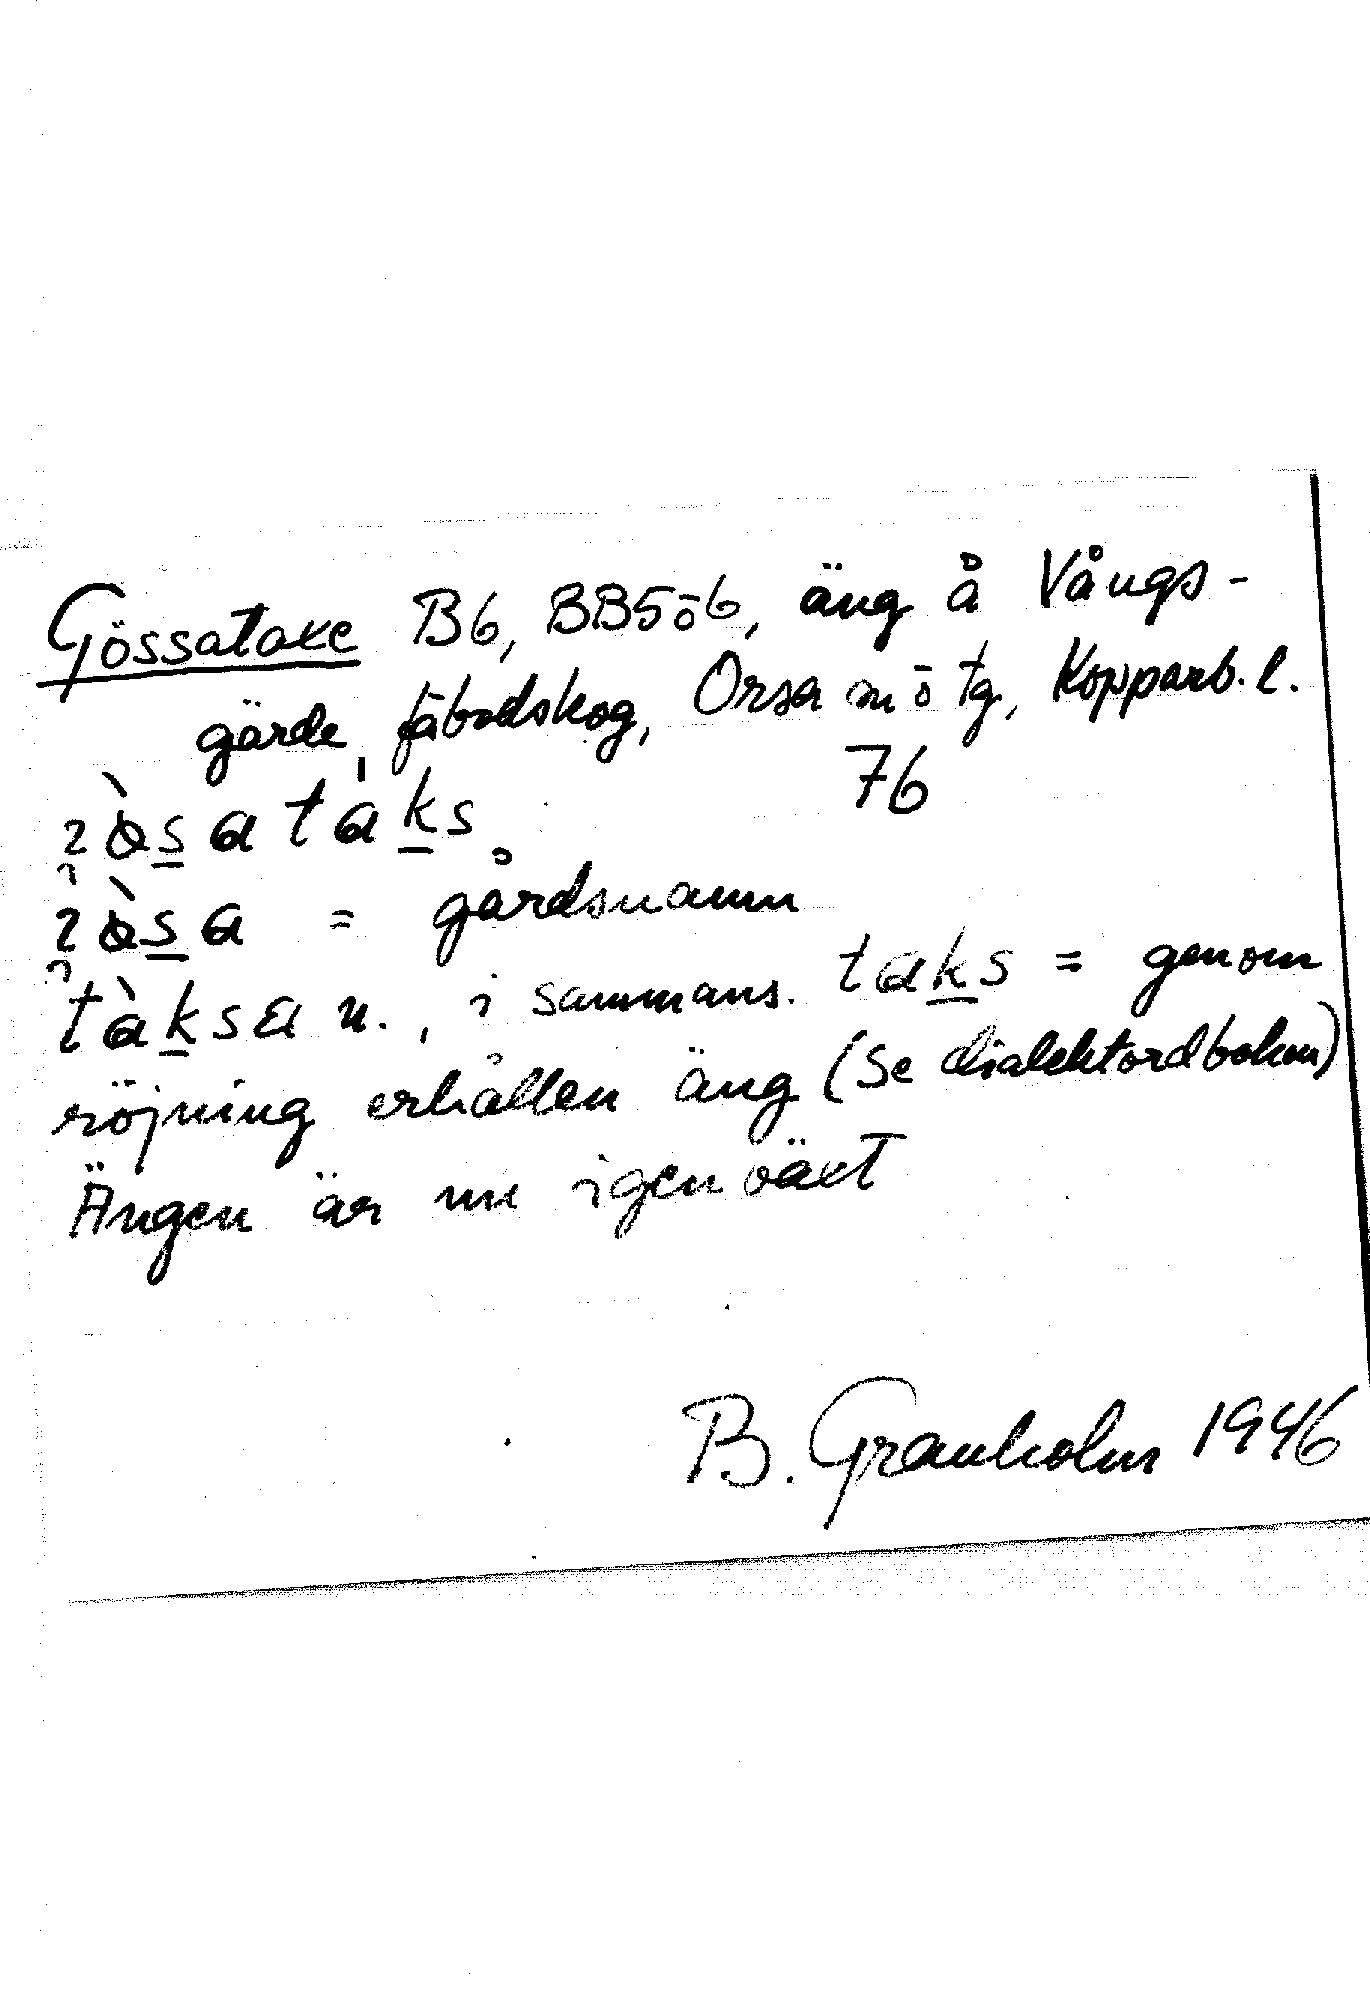 Gössataxe B6, BB5ö6, äng å Vångs-
gärde, fäbodskog, Orsa sn ō tg, Kopparb. l.
76
a táks
a = gårdsnamn
tàksa n., i sammans. taks = genom
röjning erhållen äng (Se dialektordboken)
Ängen är nu igenväxt
B. Granholm 1946